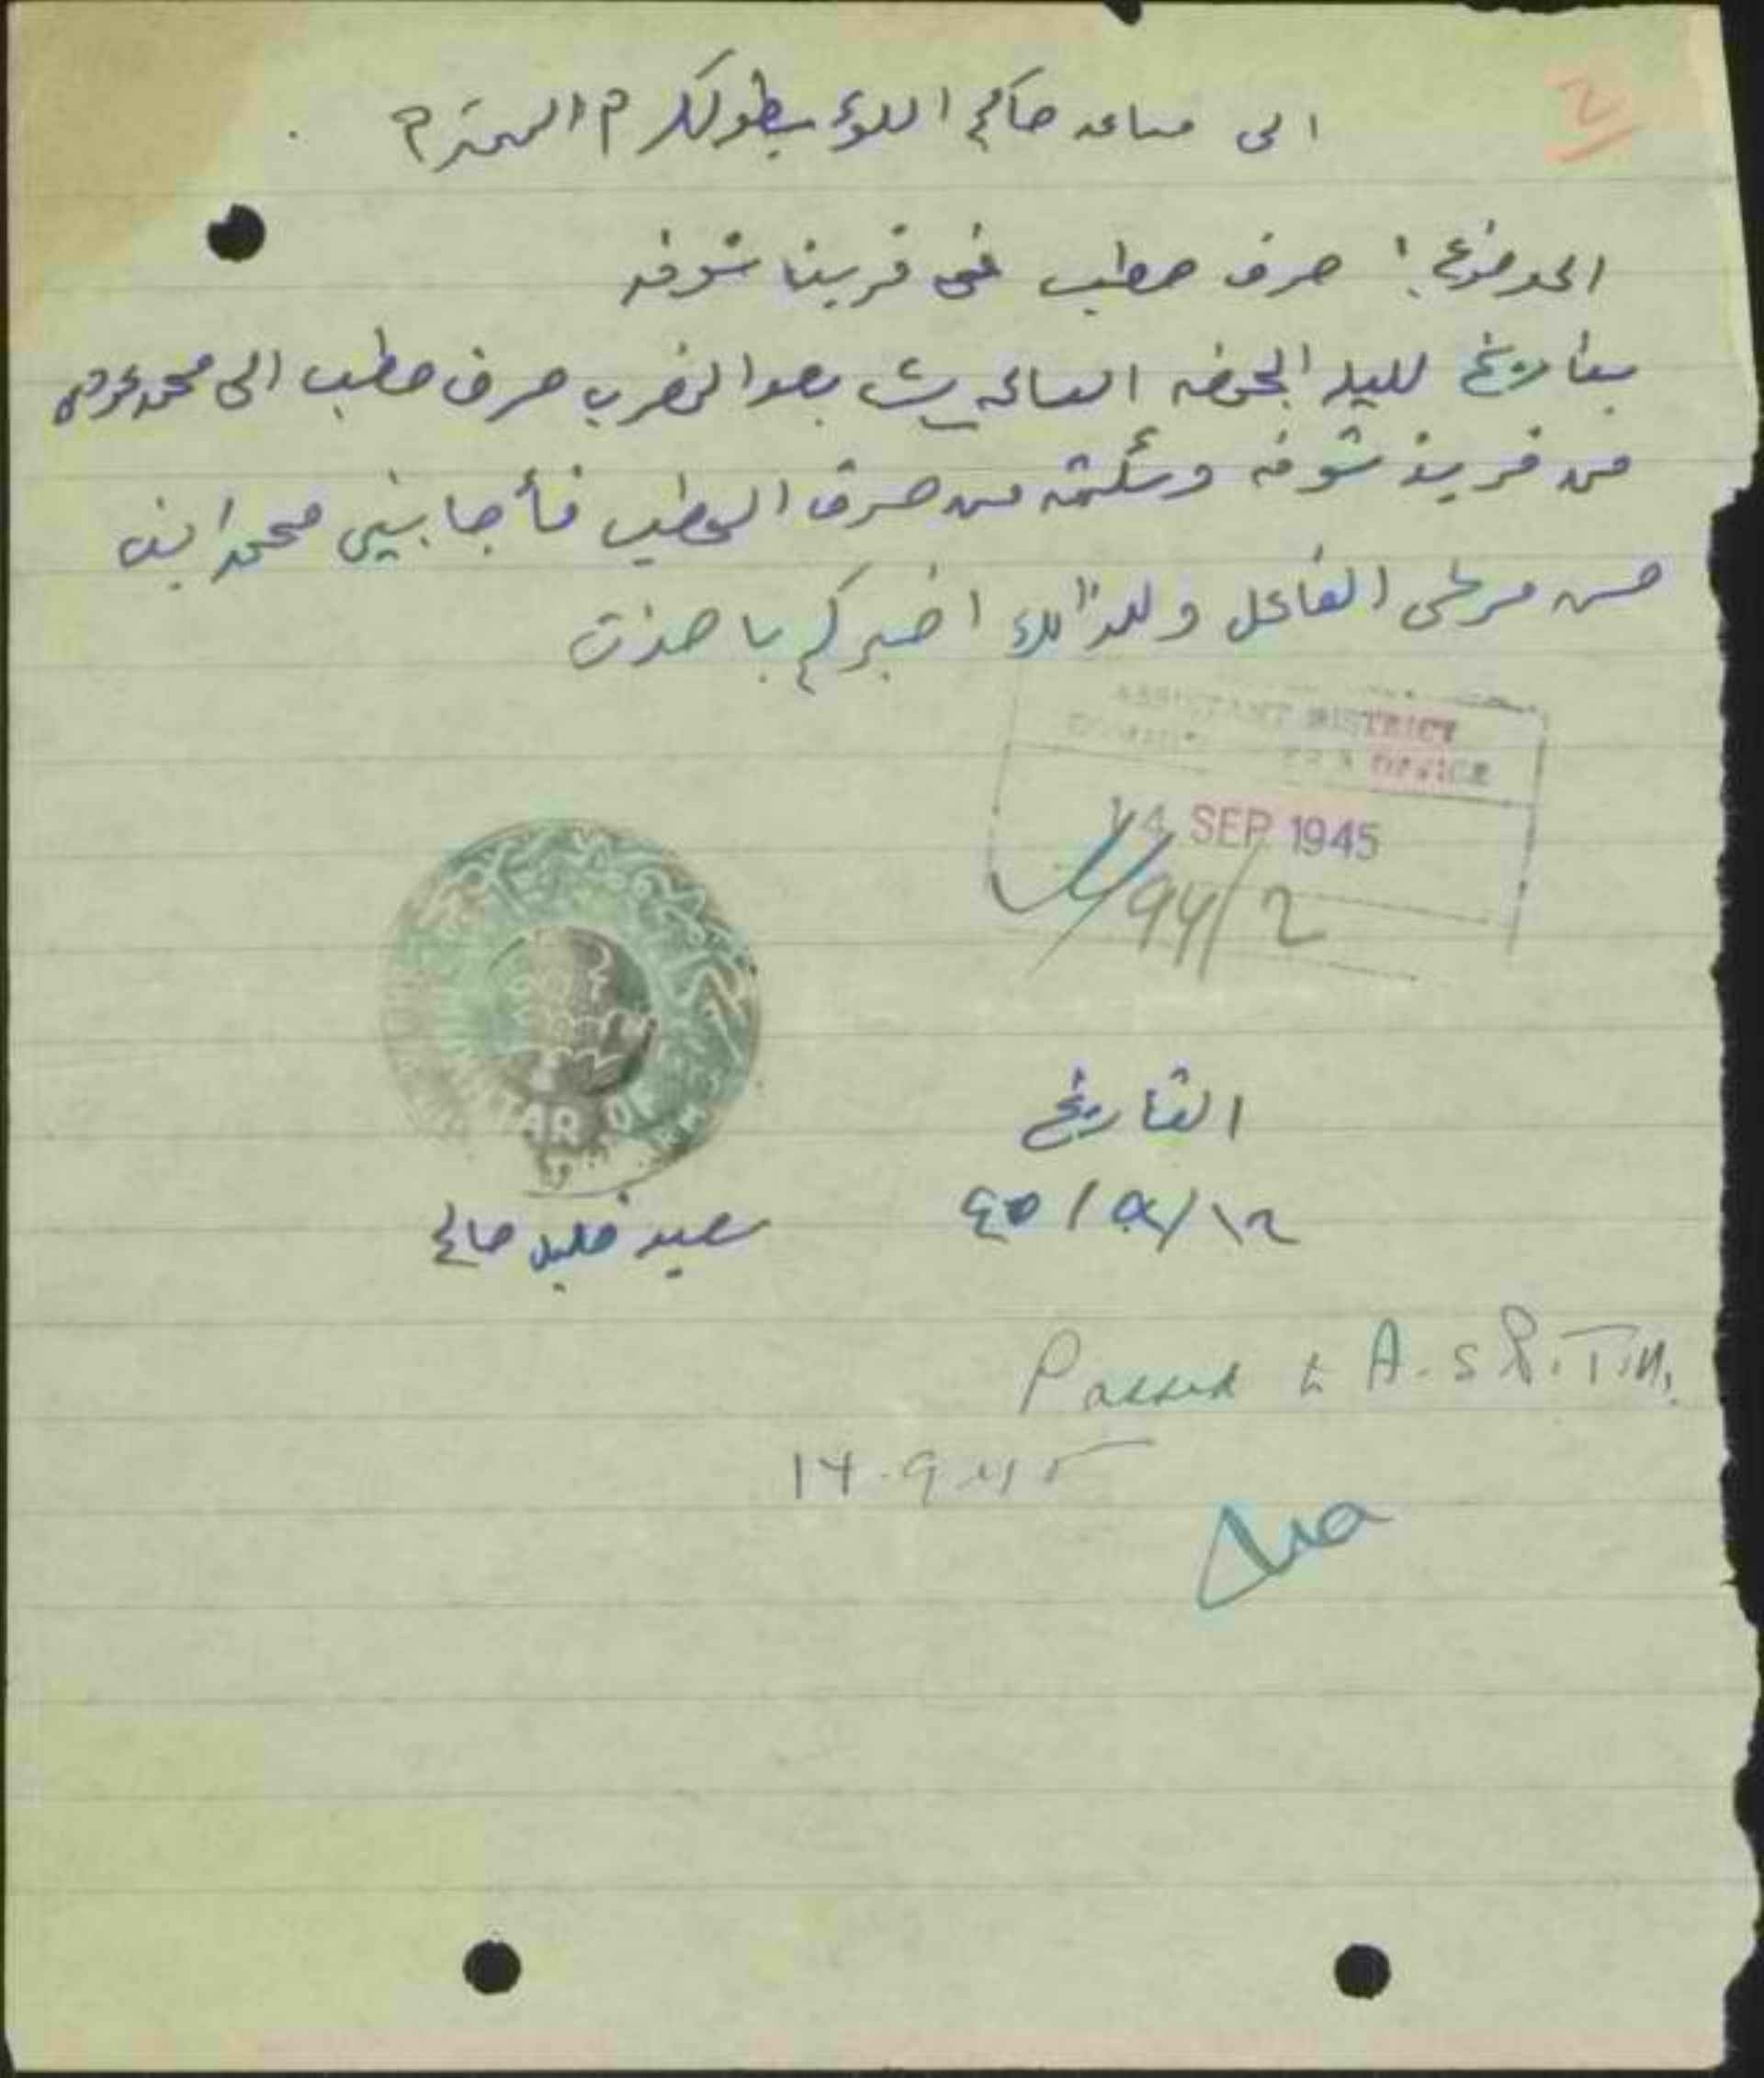 ٢
الى مساعد حاكم اللوء بطولكرم المحترم
الموضوع : حرق حطب في قريتنا شوفه
بتاريخ لليلة الجمعه الساعه بعد المغرب حرق حطب الى محمد
من قرية شوفه وسئلته من حرق الحطب فأجابني محمد ابن
حسن مرعي الفاعل ولذالك اخبركم باحذت
ASSISTANT DISTRICT
OFFICE
14 SEP 1945
التاريخ
١٢/٩/٤٥
سعيد خليل صالح
Passed to A.S.P. T.M.
14.9.45